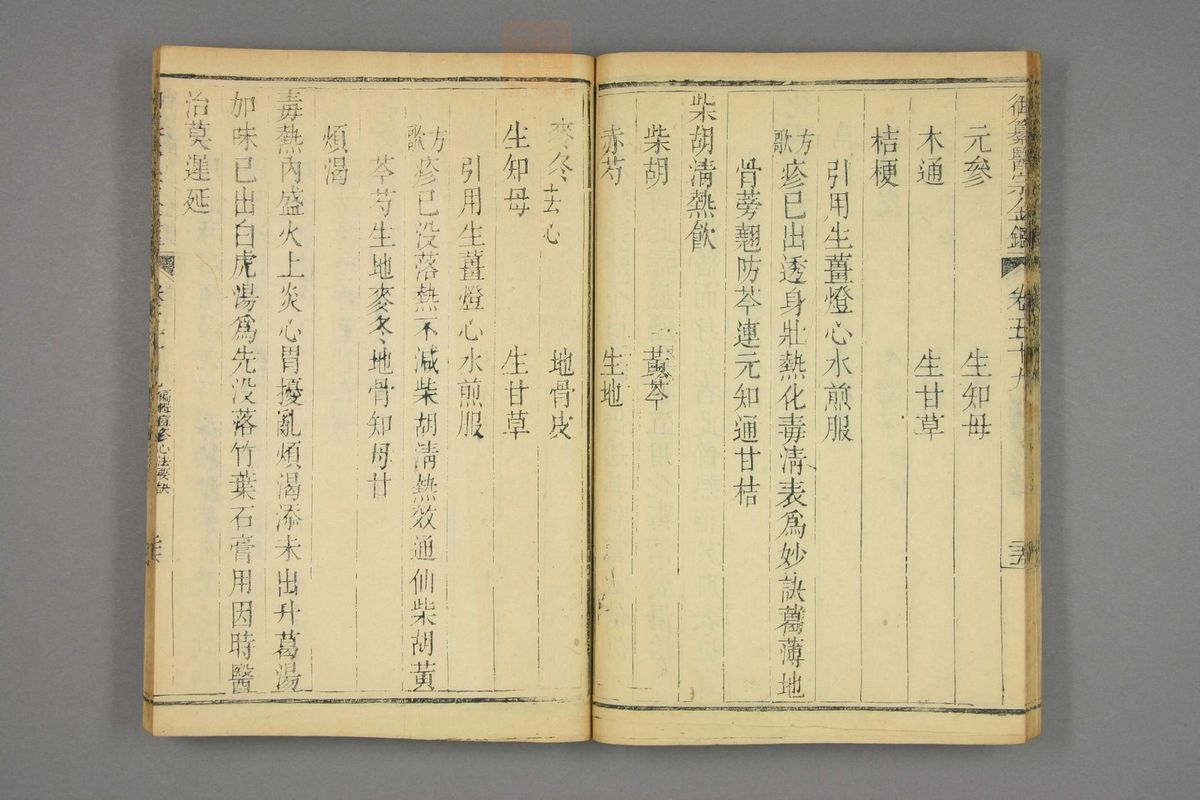 御纂醫宗金鑑 卷五十九 二五
元參 生知母
木通 生甘草
桔梗
引用生薑燈心水煎服
方歌 疹已出透身壯熱化毒清表爲妙訣葛薄地
骨蒡翹防芩連元知通甘桔
柴胡清熱飲
柴胡 黃芩
赤芍 生地
麥冬去心 地骨皮
生知母 生甘草
引用生薑燈心水煎服
方歌 疹已没落熱不減柴胡清熱效通仙柴胡黃
芩芍生地麥冬地骨知母甘
煩渴
毒熱內盛火上炎心胃擾亂煩渴添未出升葛湯
加味已出白虎湯爲先没落竹葉石膏用因時醫
治莫遲延
疹心法要訣